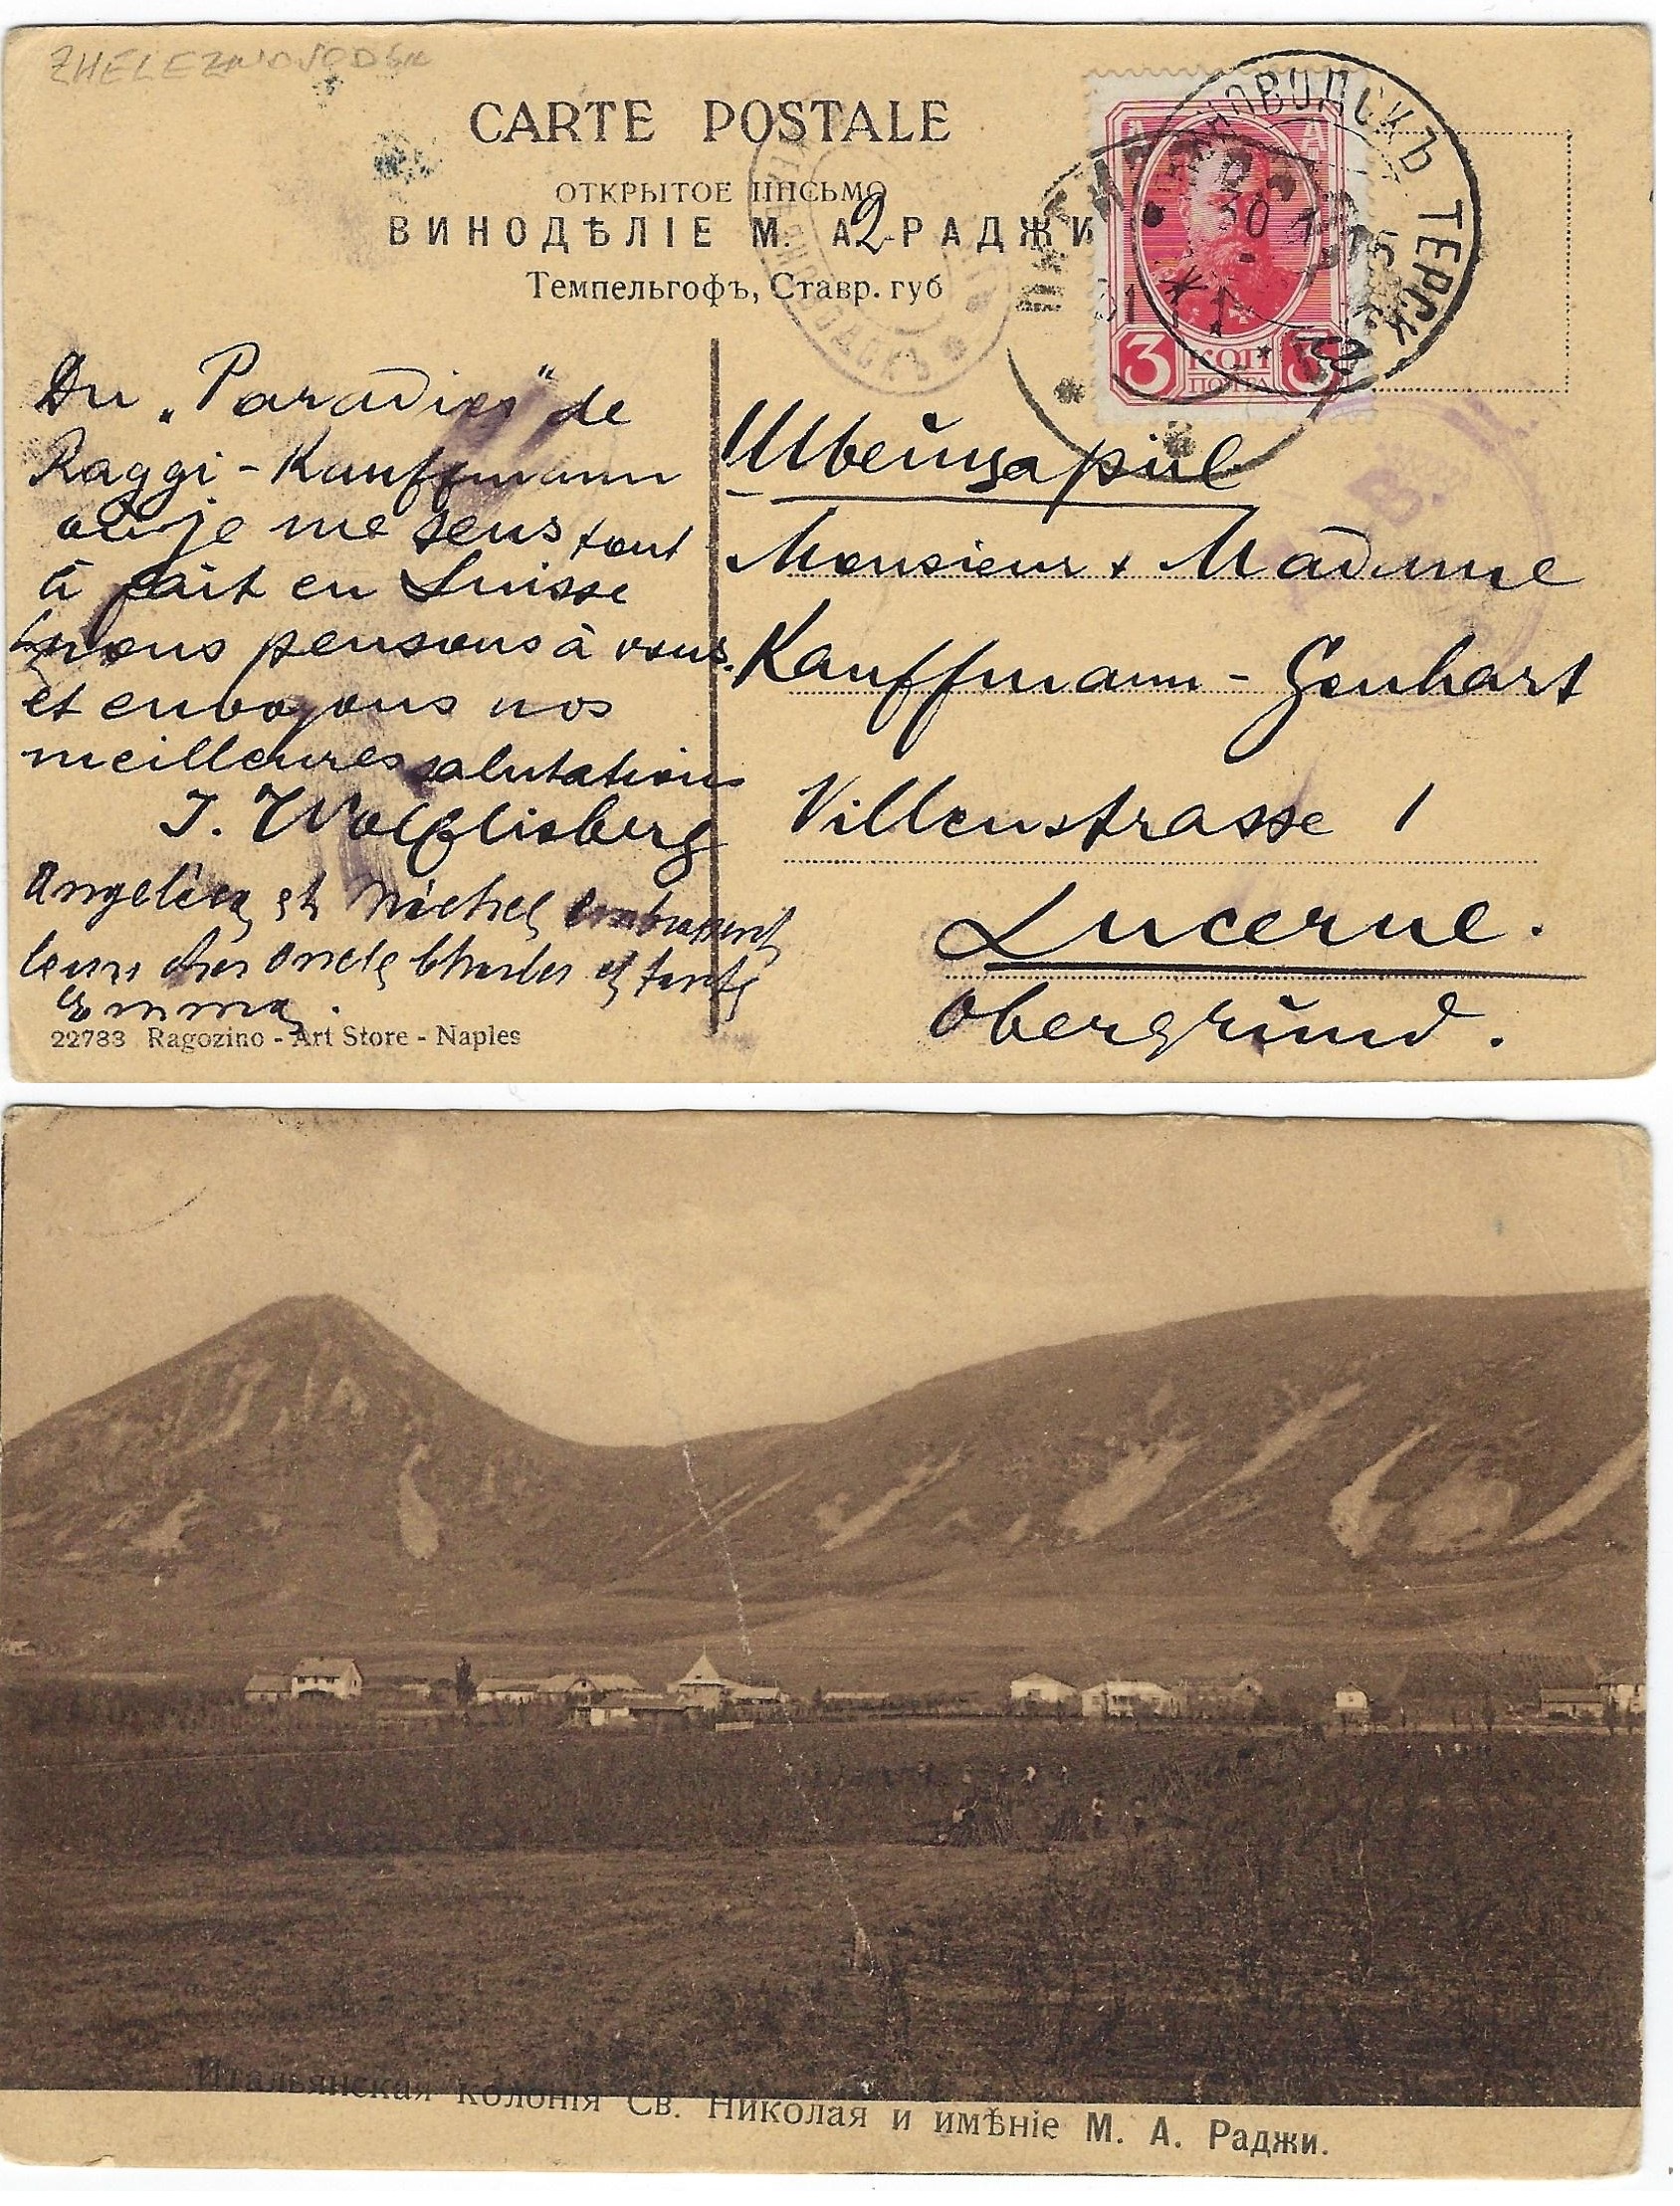 ZHELEZNOVODSK
CARTE POSTALE
ОТКРЫТОЕ ПИСЬМО
ВИНОДѢЛІЕ М. А. РАДЖИ
2
Темпельгофъ, Ставр. губ
НОВОДСКЪ ТЕРСК.
30
3 КОП 3
ПОЧТА
Du „Paradies" de
Raggi - Kauffmann
où je me sens tout
à fait en Suisse
nous pensons à vous.
et envoyons nos
meilleures salutations
J. Wolflisberg
Angelica et Michel embrassent
leurs chers oncle Charles et tante
Emma.
22783 Ragozino - Art Store - Naples
Швейцарія
Monsieur & Madame
Kauffmann - Genhart
Villenstrasse 1
Lucerne.
Obergrund.
Итальянская колонія Св. Николая и имѣніе М. А. Раджи.